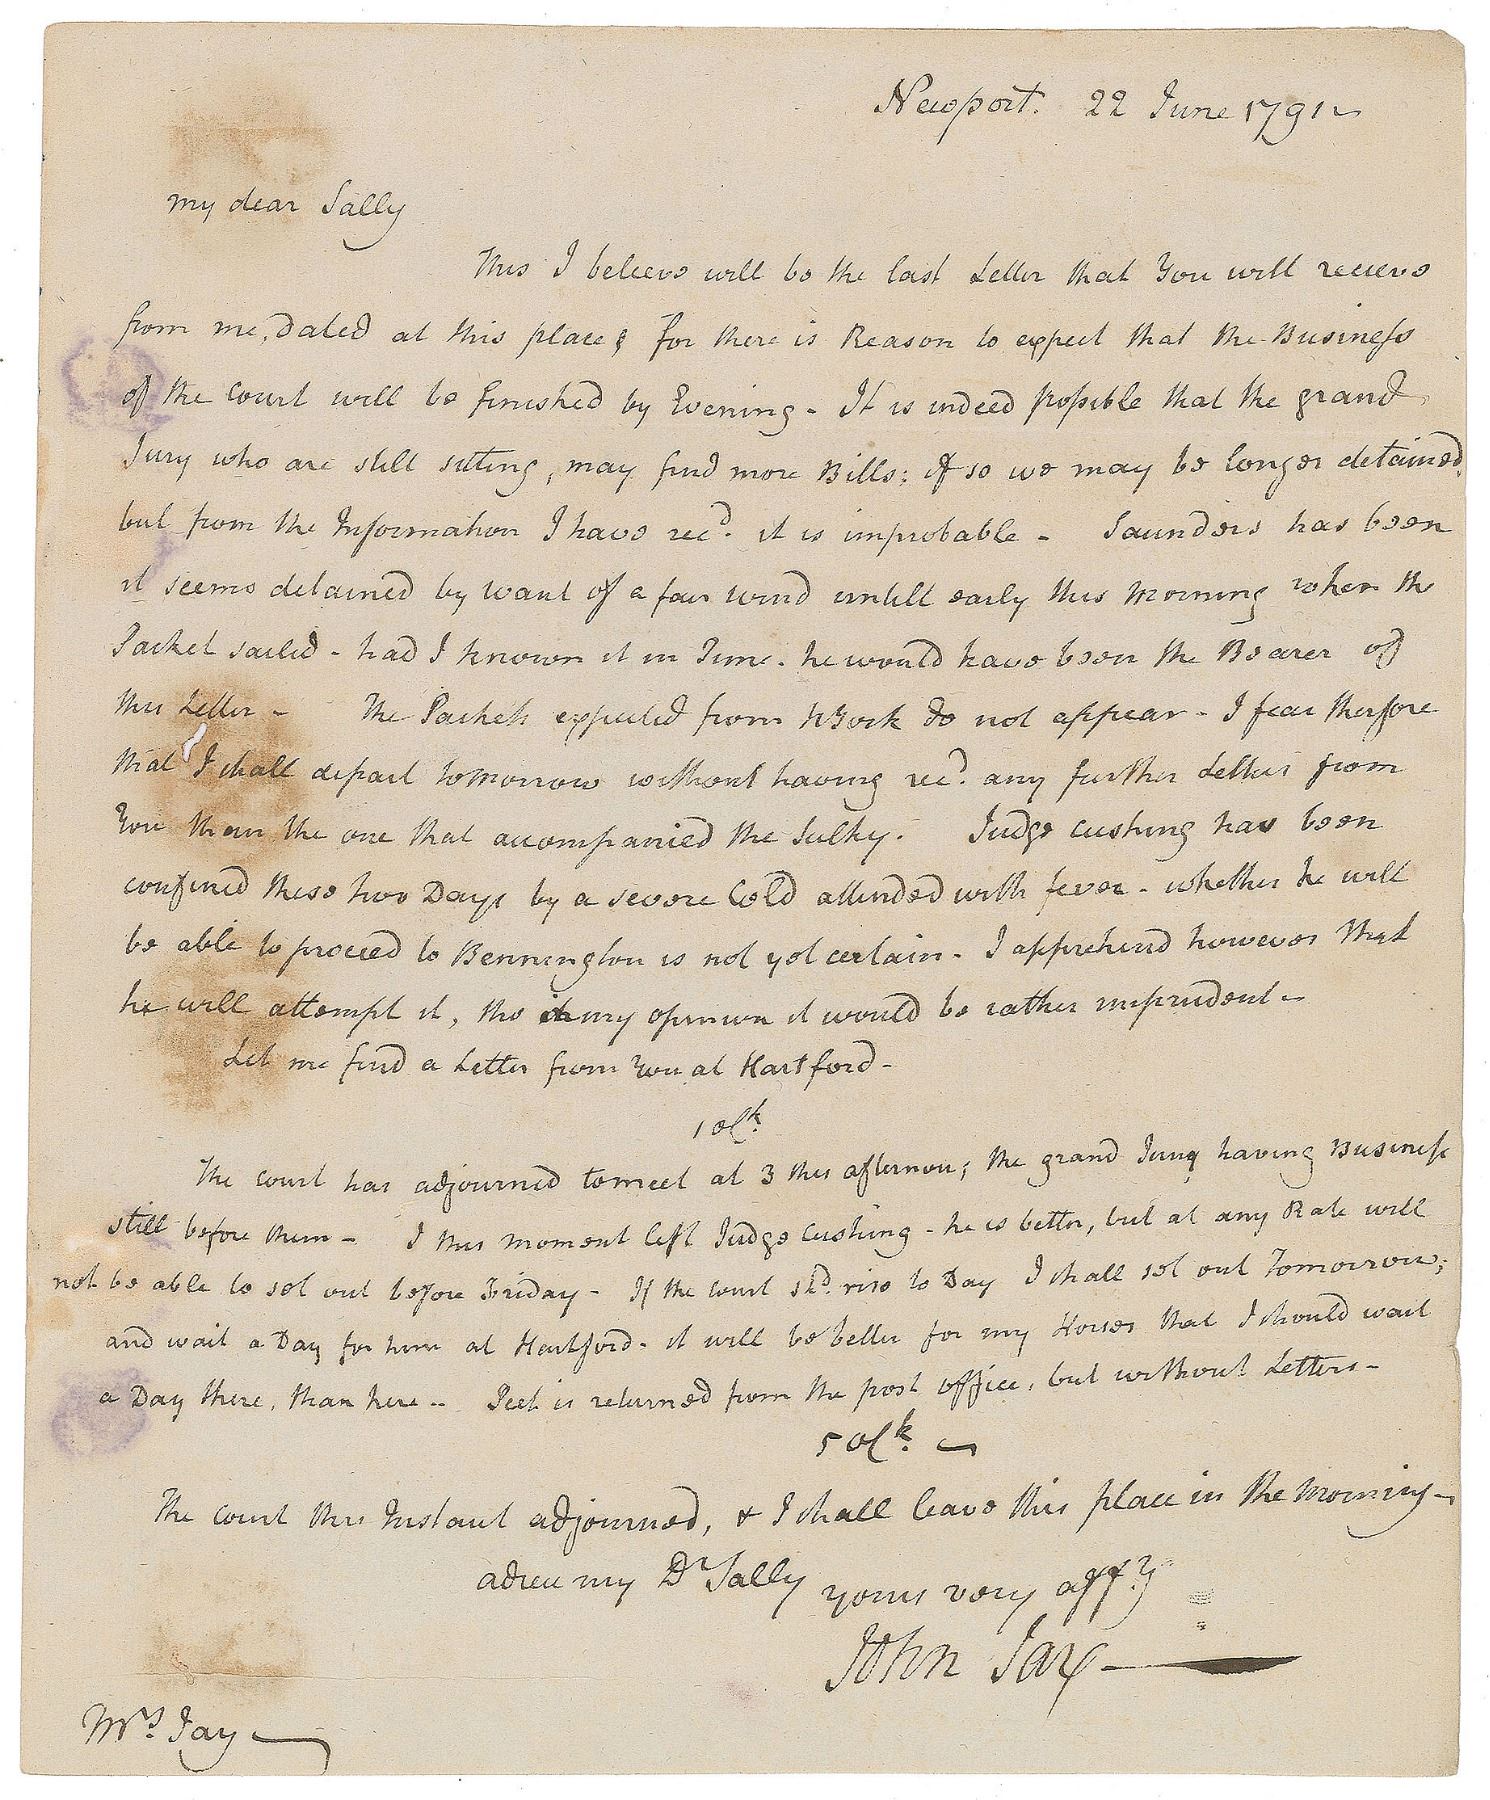 Newport. 22 June 1791 ~
my dear Sally
This I believe will be the last Letter that You will recieve
from me, dated at this place; for there is Reason to expect that the Business
of the court will be finished by Evening - It is indeed possible that the grand
Jury who are still sitting, may find more Bills; if so we may be longer detained,
but from the Information I have recd. it is improbable - Saunders has been
it seems detained by want of a fair wind untill early this Morning when the
Packet sailed - had I known it in Time. he would have been the Bearer of
this Letter - The Packets expected from NYork do not appear - I fear therefore
that I shall depart tomorrow without having recd. any further Letter from
You than the one that accompanied the Sulky. Judge cushing has been
confined these two Days by a severe Cold attended with fever - whether he will
be able to proceed to Bennington is not yet certain - I apprehend however that
he will attempt it, tho in my opinion it would be rather imprudent -
Let me find a Letter from You at Hartford -
1 oClk.
The court has adjourned to meet at 3 this afternoon; the grand Jury having Business
still before them - I this moment left Judge Cushing - he is better, but at any Rate will
not be able to set out before Friday - If the court shd. rise to Day I shall set out Tomorrow;
and wait a Day for him at Hartford - it will be better for my Horses that I should wait
a Day there, than here - Peet is returned from the post office, but without Letters -
5 oClk. ~
The court this Instant adjourned, & I shall leave this place in the Morning -
adieu my Dr Sally yours very affy.
John Jay -
Mrs. Jay